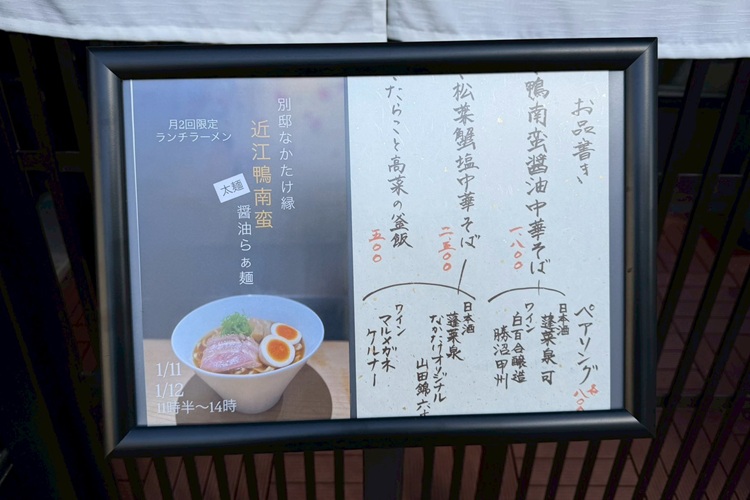 別邸なかたけ縁
月2回限定
ランチラーメン
近江鴨南蛮
太麺
醤油らぁ麺
1/11
1/12
11時半～14時
お品書き
・鴨南蛮醤油中華そば
一、八〇〇
・松葉蟹塩中華そば
二、五〇〇
・たらこと高菜の釜飯
五〇〇
ペアリング 各八〇〇
日本酒
蓬莱泉 可
ワイン
白百合醸造
勝沼甲州
日本酒
蓬莱泉
なかたけオリジナル
山田錦六
ワイン
マルメガネ
ケルナー